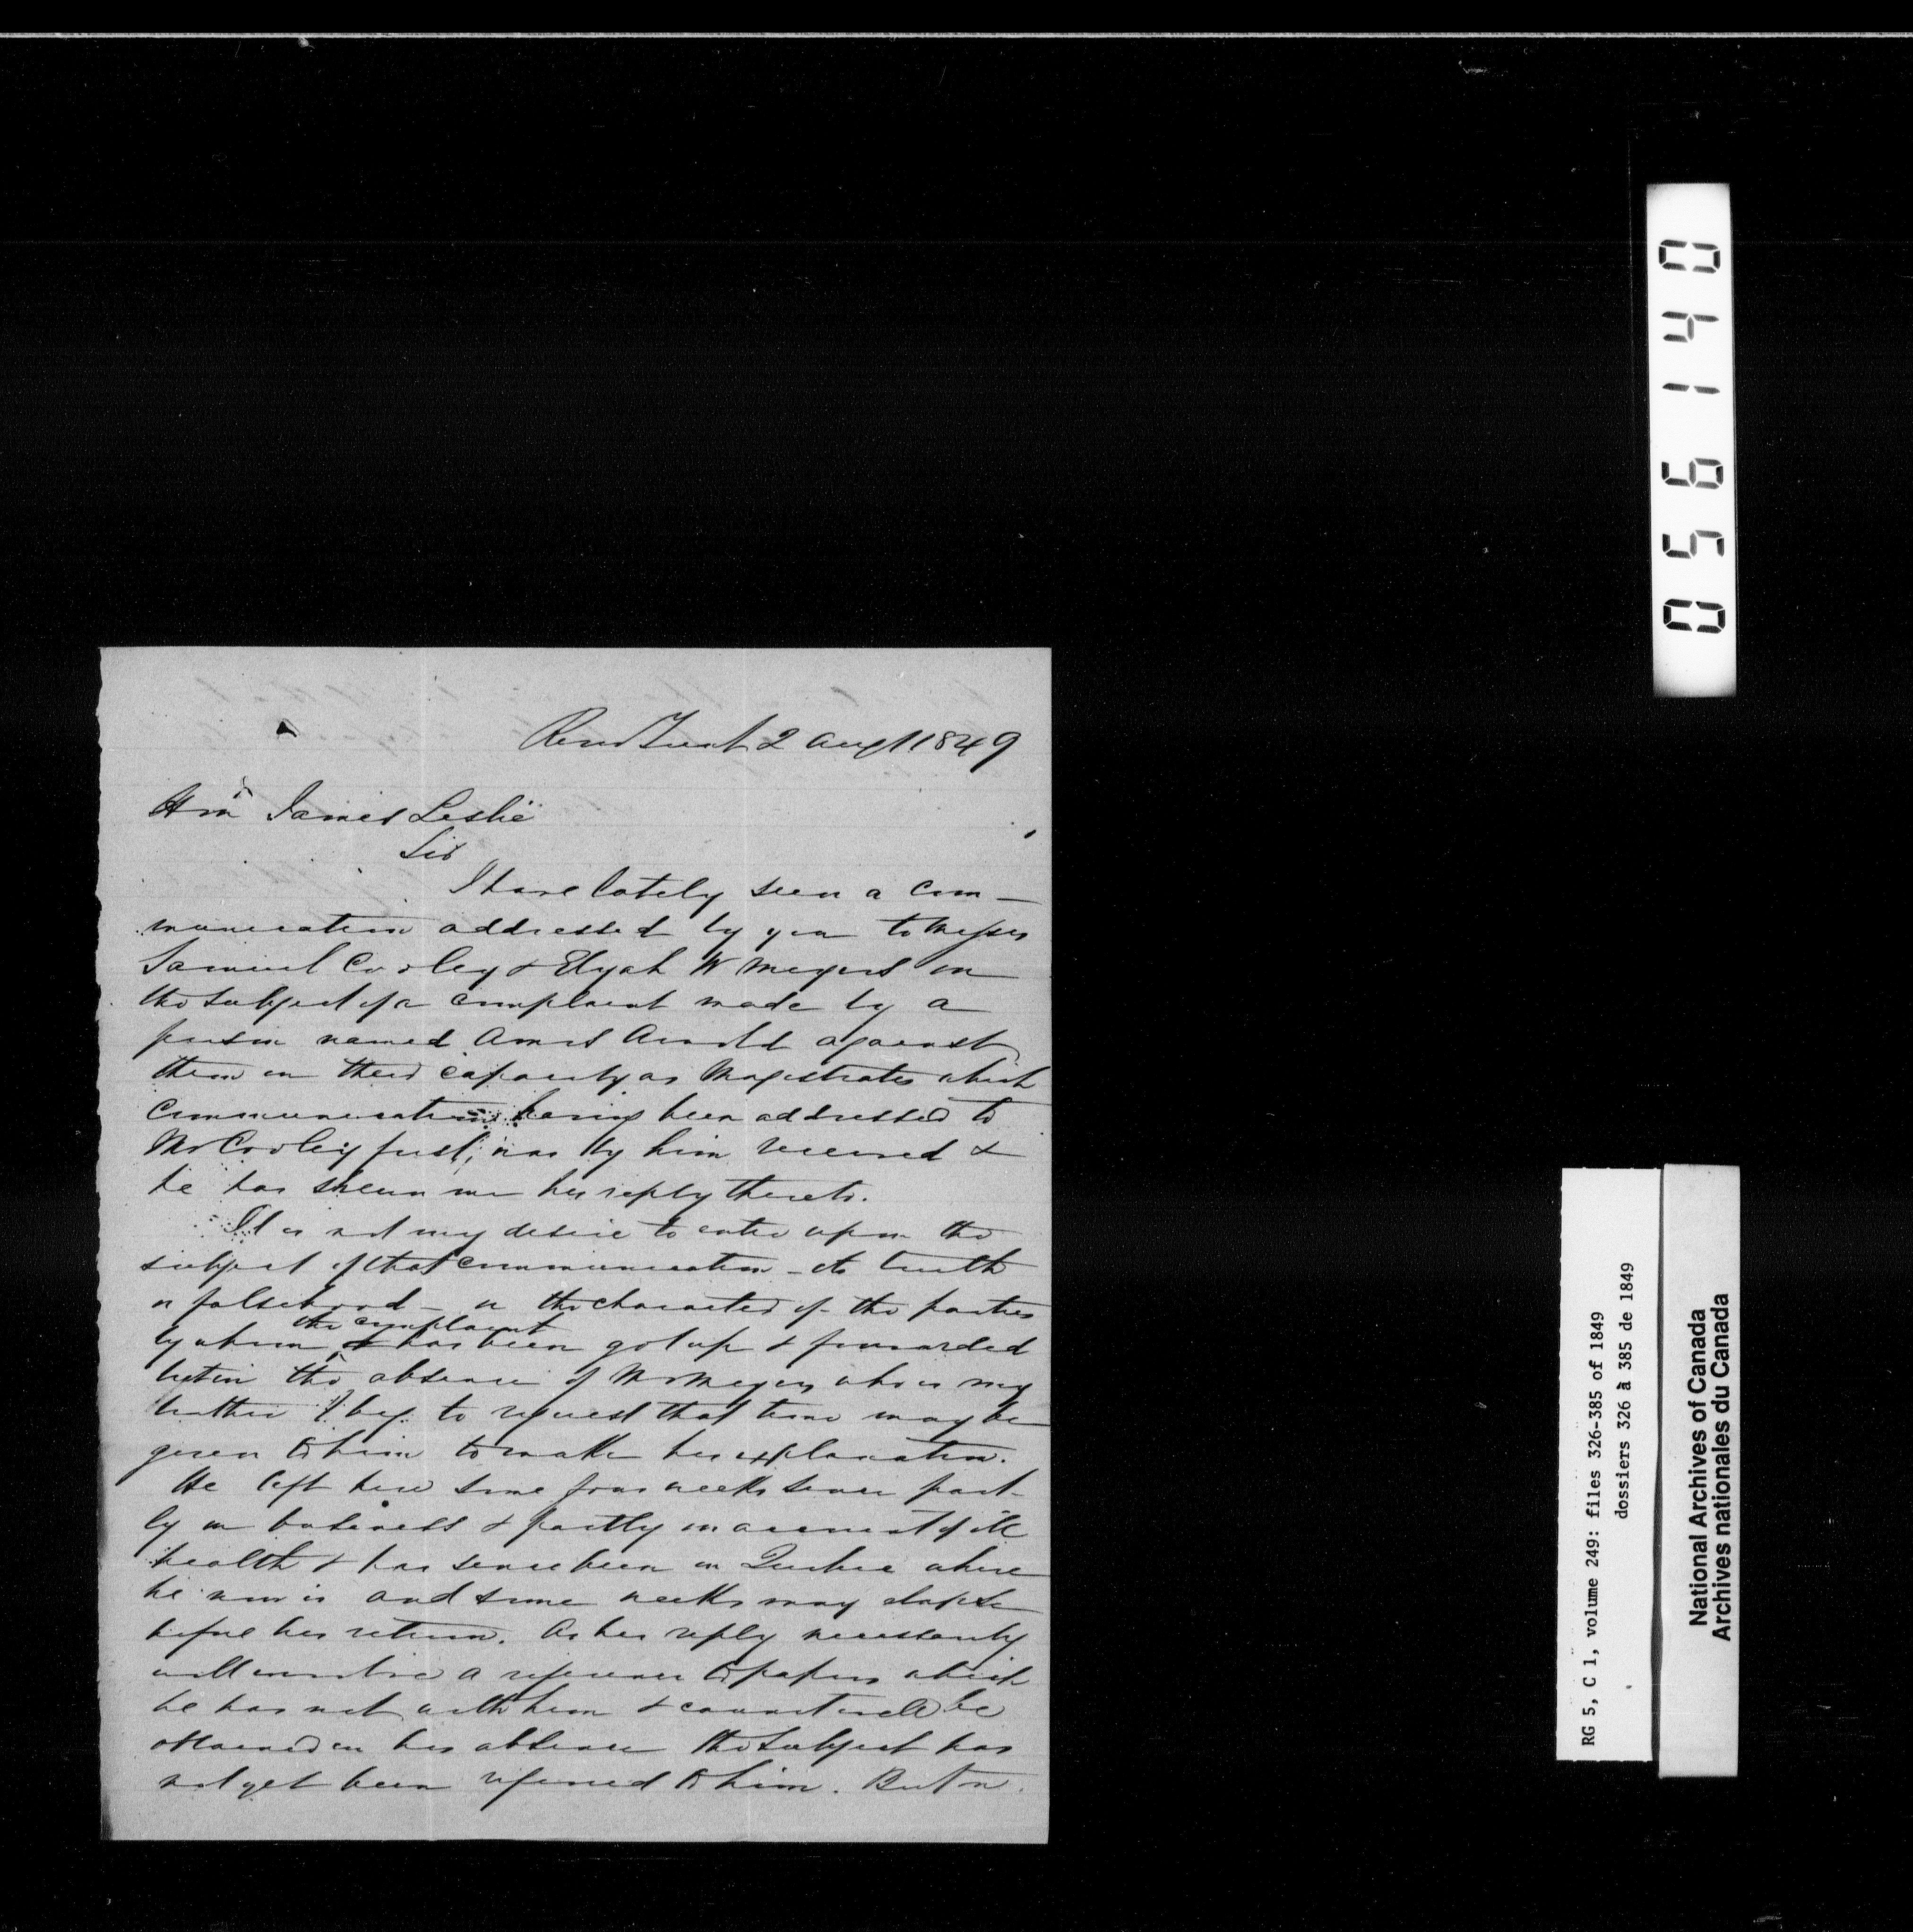 River Trent 2 Augt 1849
Honl James Leslie
Sir
I have lately seen a com-
munication addressed by you to Messrs
Samuel Cooley & Elijah W Meyers on
the subject of a complaint made by a
person named Amos Arnold against
them in their capacity as Magistrates which
communication having been addressed to
Mr Cooley first, was by him received &
he has shewn me his reply thereto.
It is not my desire to enter upon the
subject of that communication - its truth
or falsehood - or the character of the parties
by whom the complaint has been got up & forwarded
but in the absence of Mr Meyers who is my
brother I beg to request that time may be
given to him to make his explanation.
He left here some four weeks since part-
ly on business & partly on account of ill
health & has since been in Quebec where
he now is and some weeks may elapse
before his return. As his reply necessarily
will involve a reference to papers which
he has not with him & cannot well be
obtained in his absence the subject has
not yet been referred to him. But on
056140
RG 5, C 1, volume 249: files 326-385 of 1849
dossiers 326 à 385 de 1849
National Archives of Canada
Archives nationales du Canada